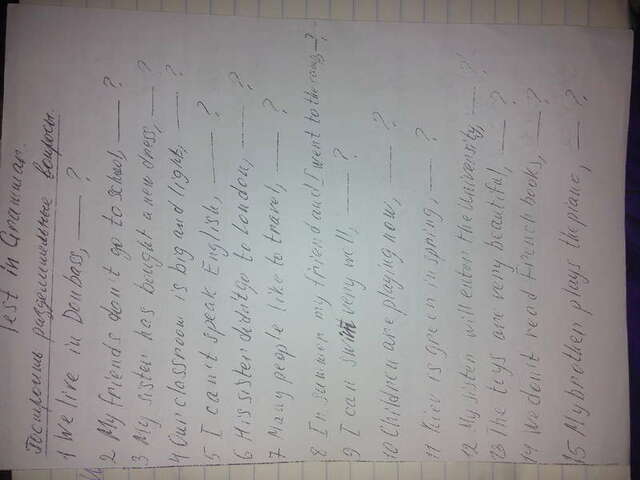 Test in Grammar.
Построить разделительные вопросы.
1 We live in Donbass, — ?
2 My friends don't go to school, — ?
3 My sister has bought a new dress, — ?
4 Our classroom is big and light, — ?
5 I can't speak English, — ?
6 His sister didn't go to London, — ?
7 Many people like to travel, — ?
8 In summer my friend and I went to the camp, — ?
9 I can swim very well, — ?
10 Children are playing now, — ?
11 Kiev is green in spring, — ?
12 My sister will enter the University, — ?
13 The toys are very beautiful, — ?
14 We don't read French books, — ?
15 My brother plays the piano, — ?